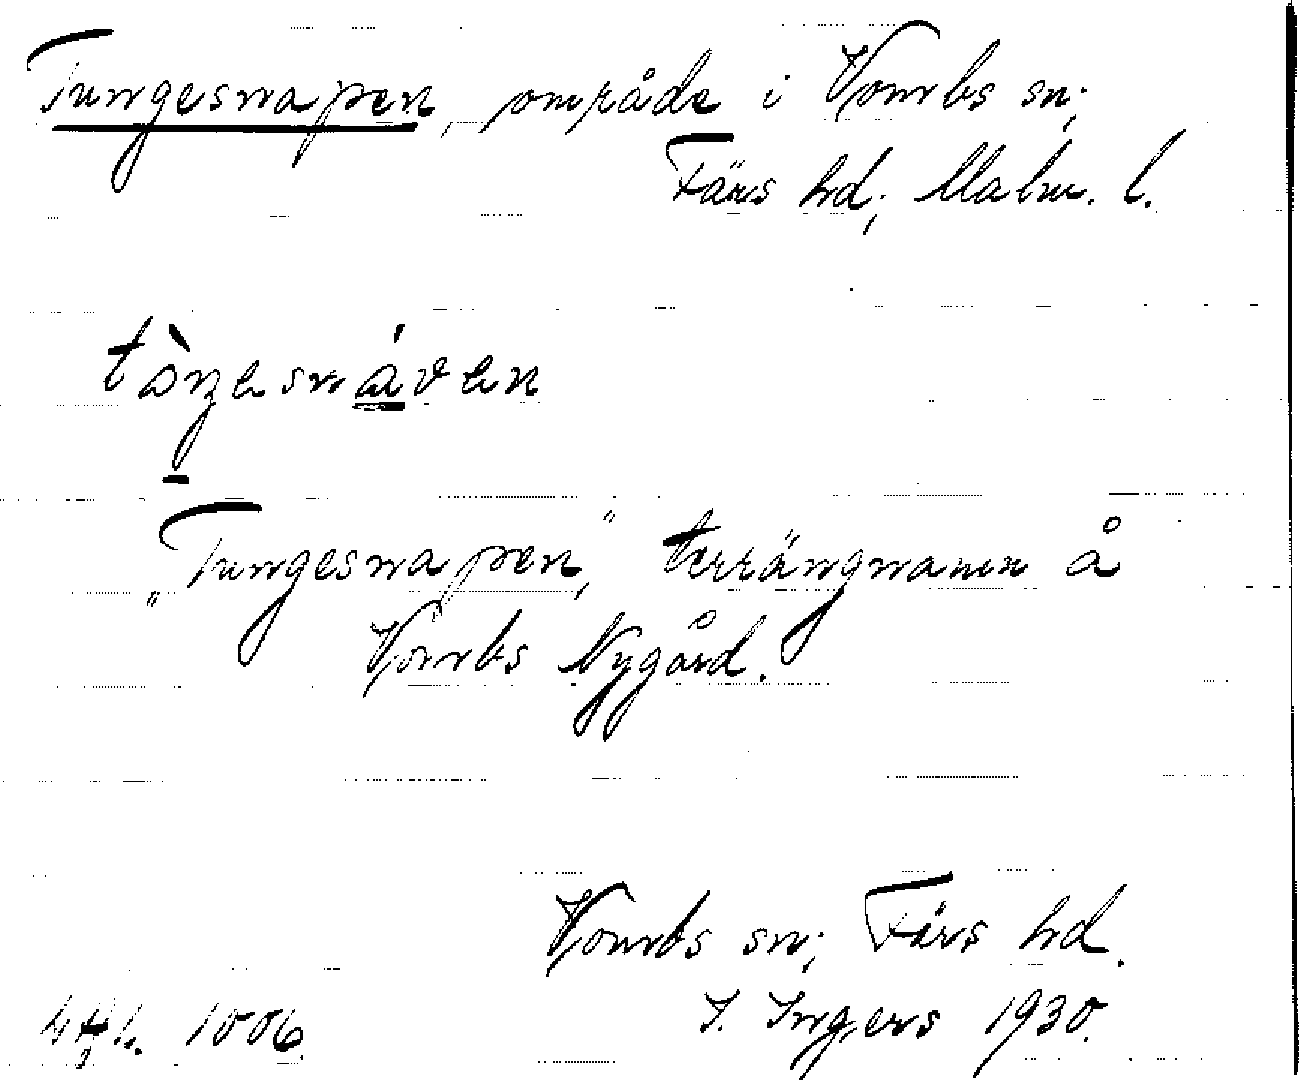 Tungesnapen, område i Vombs sn;
Färs hd; Malm. l.
tòŋesnáven
"Tungesnapen," terrängnamn å
Vombs Nygård.
Vombs sn; Färs hd.
I. Ingers 1930.
1006.